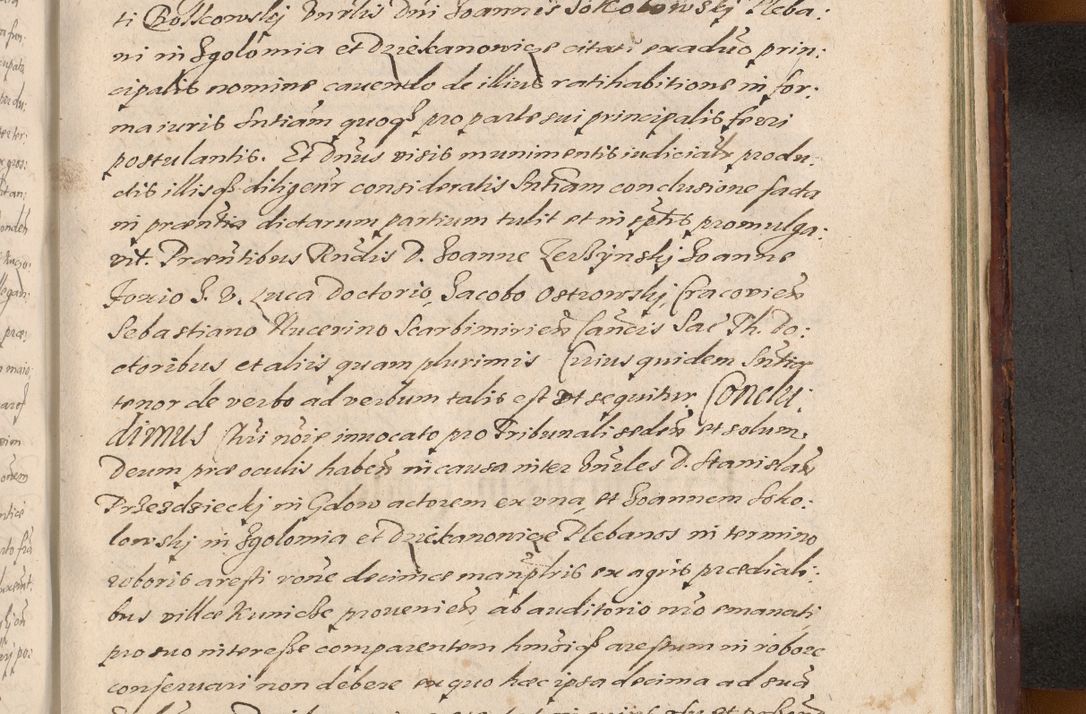 ti Boskowskj Vnrlis Dni Joannis Sokolowskj Pleba:
ni in Jgolomia et Dziekanowicze citati ex aduo prin:
cipalis nomine cauendo de illius ratihabitione in for:
ma iuris Sntiam quoqз pro parte sui principalis ferri
postulantis. Et Dnus visis munimentis iudicialr produ
ctis illisqз diligenr consideratis Sntiam conclusione facta
in præntia dictarum partium tulit et in sptis promulga:
vit. Præntibus Rndis D. Joanne Joanne
Foxio J. V. Luca Doctorio, Jacobo Ostrowskj, Cracovien
Sebastiano Kucerino Scarbimirien Cancis Sac Th. Do:
ctoribus et aliis quam plurimis Cuius quidem Sntiæ
tenor de verbo ad verbum talis est ut sequitur. Conclu:
dimus Chri noie innocato pro Tribunali seden et solum
Deum præ oculis haben in causa inter Vnrles D. Stanislaū
Przezdzieckj in Gdow actorem ex vna, et Joannem Soko:
lowskj in Jgolomia et Dziekanowicze Plebanos in termino
roboris aresti rone decimæ manplris ex agris prædiali:
bus villæ Kunicze prouenien ab auditorio nro emanati,
pro suo interesse comparentem hmoiqз arestum in robore
conseruari non debere ex quo hæc ipsa decima ad suā